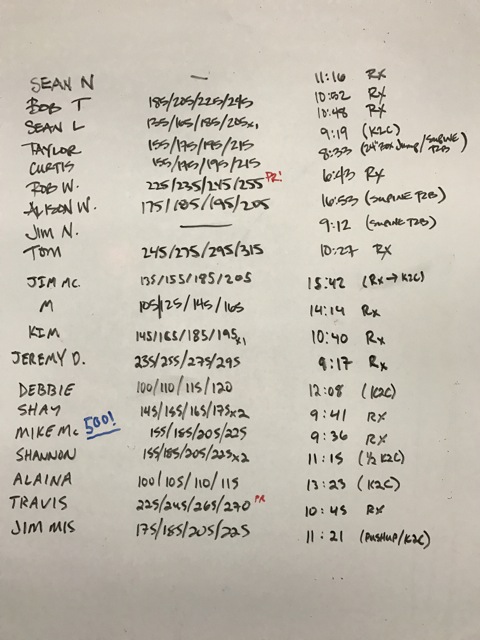 SEAN N — 11:16 Rx
BOB T 185/205/225/245 10:52 Rx
SEAN L 135/165/185/205x1 10:48 Rx
TAYLOR 155/175/195/215 9:19 (K2C)
CURTIS 155/175/195/215 8:33 (24" Box Jump/SUPINE T2B)
ROB W. 225/235/245/255 PR! 6:43 Rx
ALISON W. 175/185/195/205 16:53 (SUPINE T2B)
JIM N. — 9:12 (SUPINE T2B)
TOM 245/275/295/315 10:27 Rx
JIM MC. 135/155/185/205 15:42 (Rx→K2C)
M 105/125/145/165 14:14 Rx
KIM 145/165/185/195x1 10:40 Rx
JEREMY D. 235/255/275/295 9:17 Rx
DEBBIE 100/110/115/120 12:08 (K2C)
SHAY 145/155/165/175x2 9:41 Rx
MIKE Mc 500! 155/185/205/225 9:36 Rx
SHANNON 155/185/205/225x2 11:15 (1/2 K2C)
ALAINA 100/105/110/115 13:23 (K2C)
TRAVIS 225/245/265/270 PR 10:45 Rx
JIM MIS 175/185/205/225 11:21 (PUSHUP/K2C)